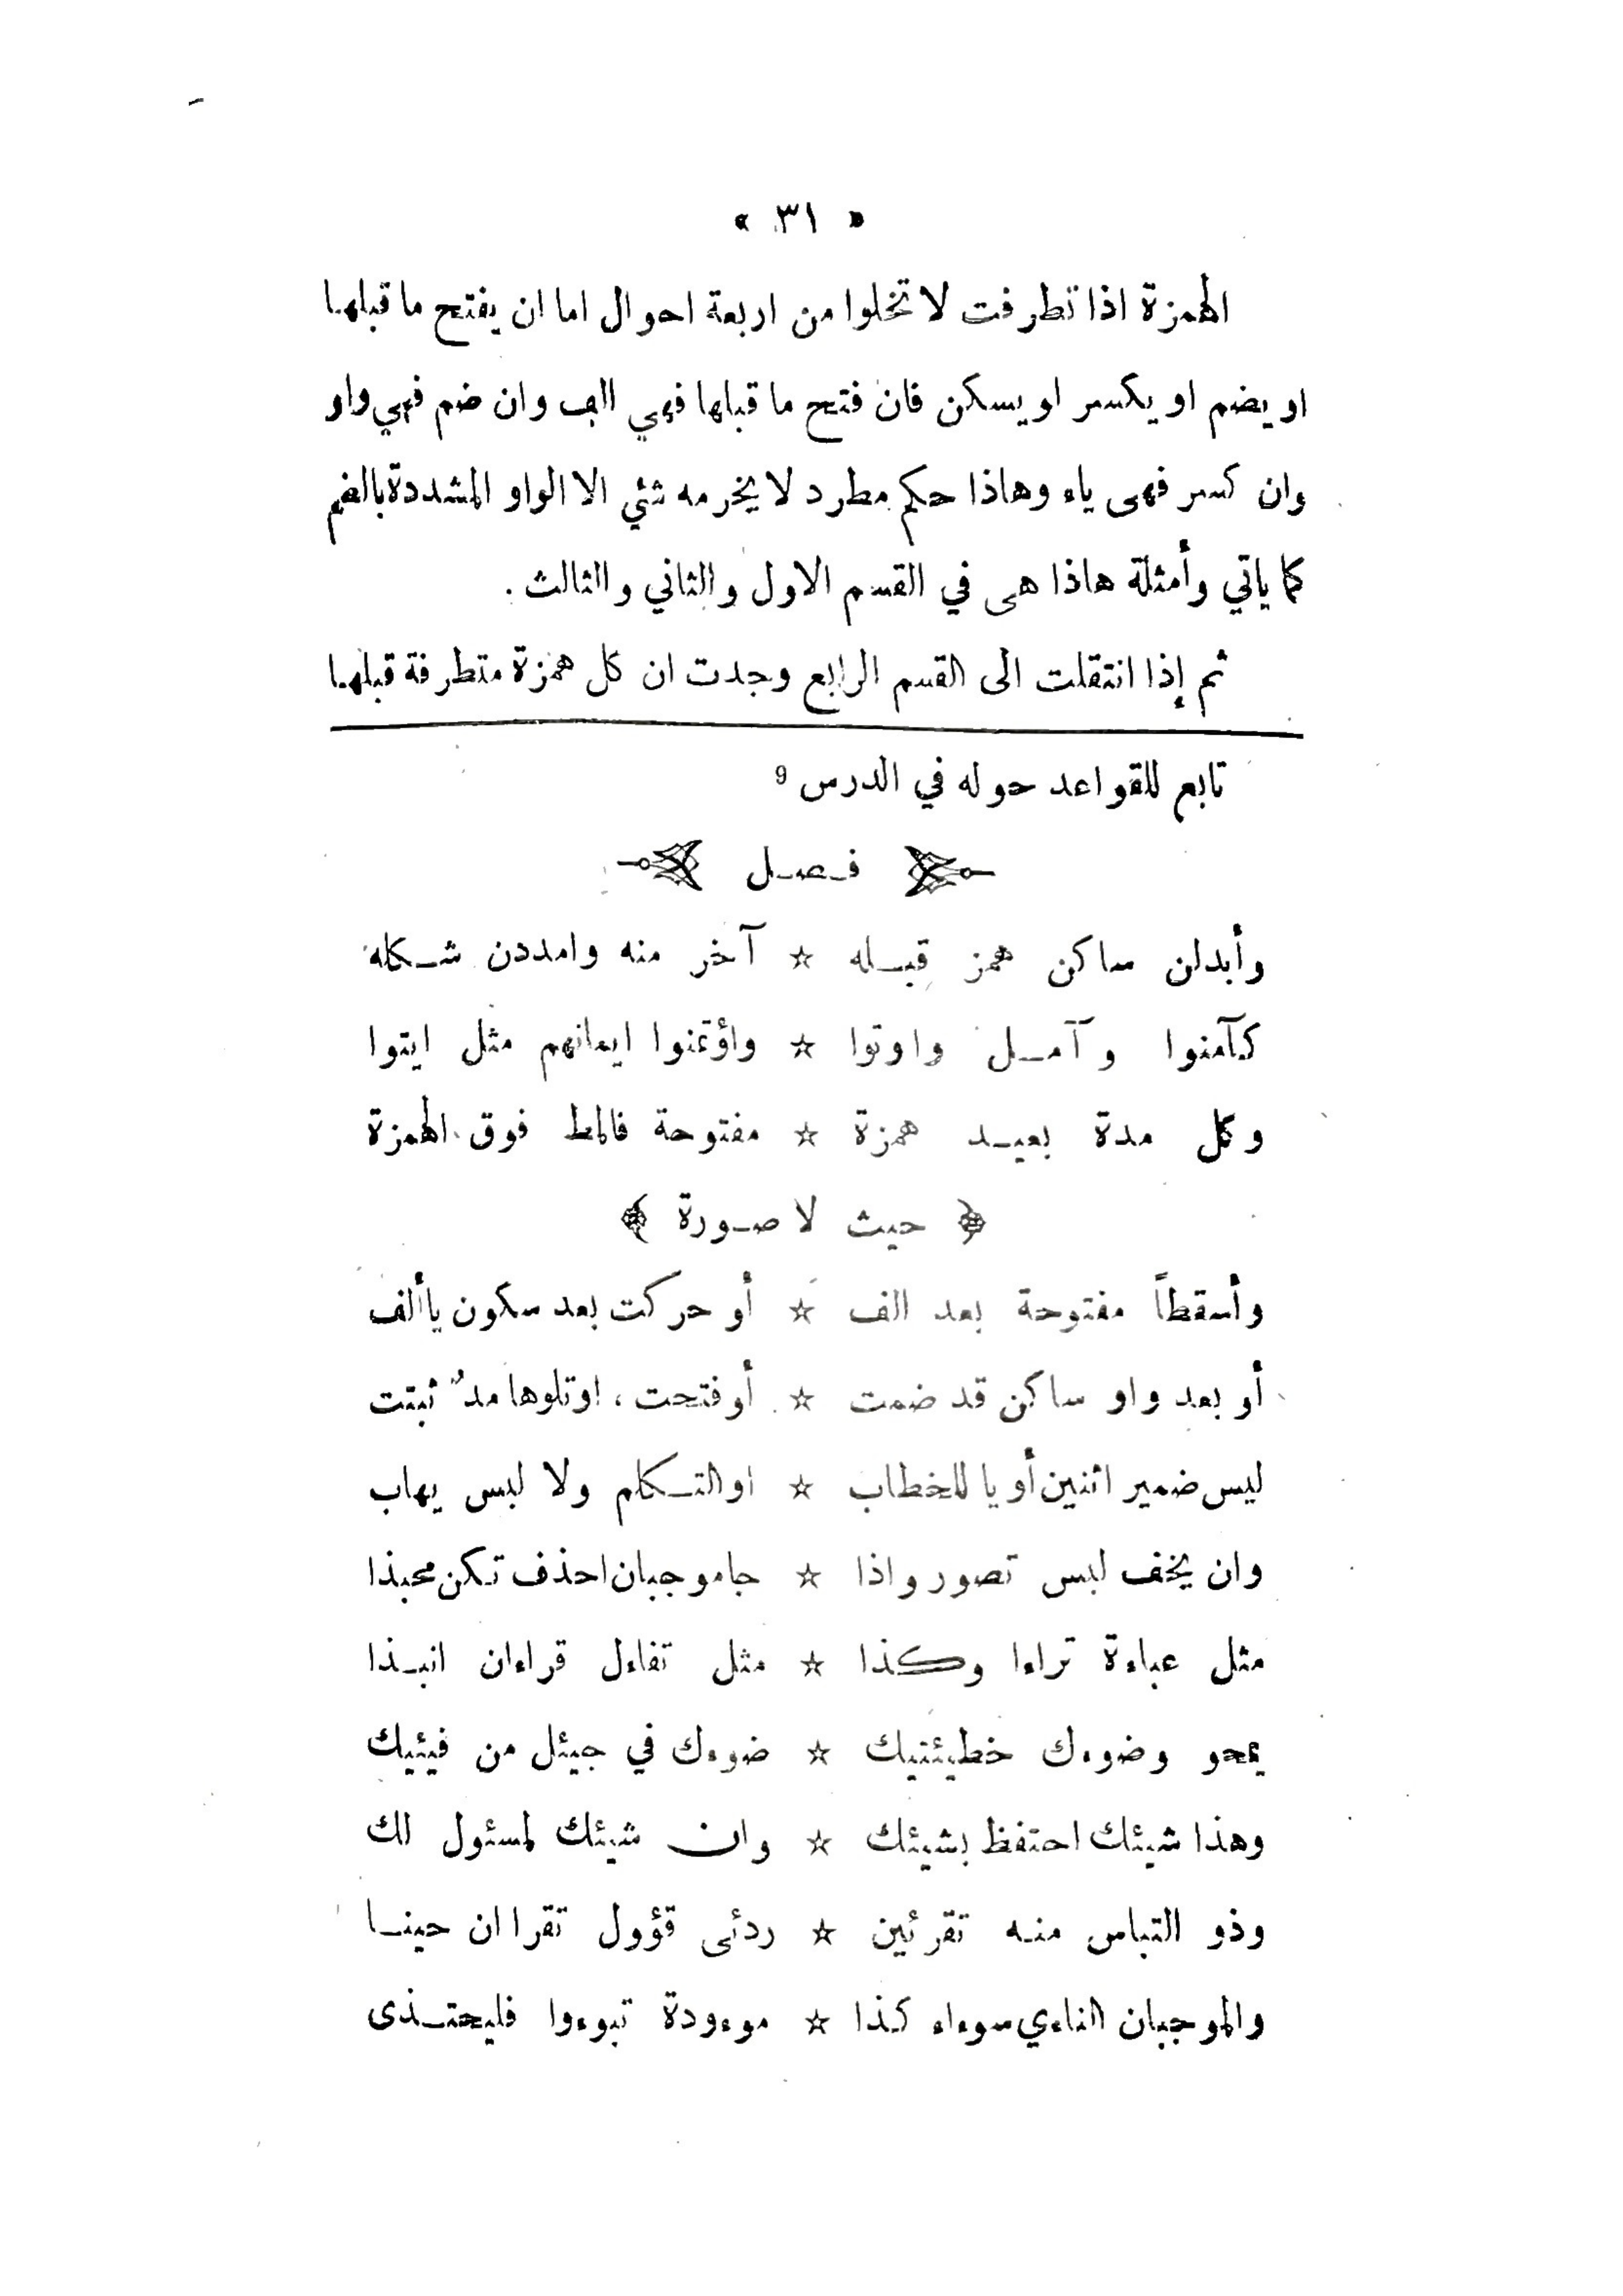 « ٣١ »
الهمزة اذا تطرفت لا تخلوا من اربعة احوال اما ان يفتح ما قبلها
او يضم او يكسر او يسكن فان فتح ما قبلها فهي الف وان ضم فهي واو
وان كسر فهى ياء وهاذا حكم مطرد لا يخرمه شئي الا الواو المشددة بالضم
كما ياتي وأمثلة هاذا هى في القسم الاول والثاني والثالث .
ثم إذا انتقلت الى القسم الرابع وجدت ان كل همزة متطرفة قبلها
تابع للقواعد حوله في الدرس 9
فصل
وأبدلن ساكن همز قبله ☆ آخر منه وامددن شكله
كآمنوا وآمل واوتوا ☆ واؤتمنوا ايمانهم مثل ايتوا
وكل مدة بعيد همزة ☆ مفتوحة فالمط فوق الهمزة
﴿ حيث لا صورة ﴾
وأسقطاً مفتوحة بعد الف ☆ أو حركت بعد سكون ياألف
أو بعد واو ساكن قد ضمت ☆ أو فتحت ، اوتلوها مدٌ ثبتت
ليس ضمير اثنين أو يا للخطاب ☆ او التكلم ولا لبس يهاب
وان يخف لبس تصور واذا ☆ جاموجبان احذف تكن محبذا
مثل عباءة تراءا وكذا ☆ مثل تفاءل قراءان انبذا
يمحو وضوءك خطيئتيك ☆ ضوءك في جيئل من فيئيك
وهذا شيئك احتفظ بشيئك ☆ وان شيئك لمسئول لك
وذو التباس منه تقرئين ☆ ردئى قؤول تقراان حينا
والموجبان الناءي سوءاء كذا ☆ موءودة تبوءوا فليحتذى